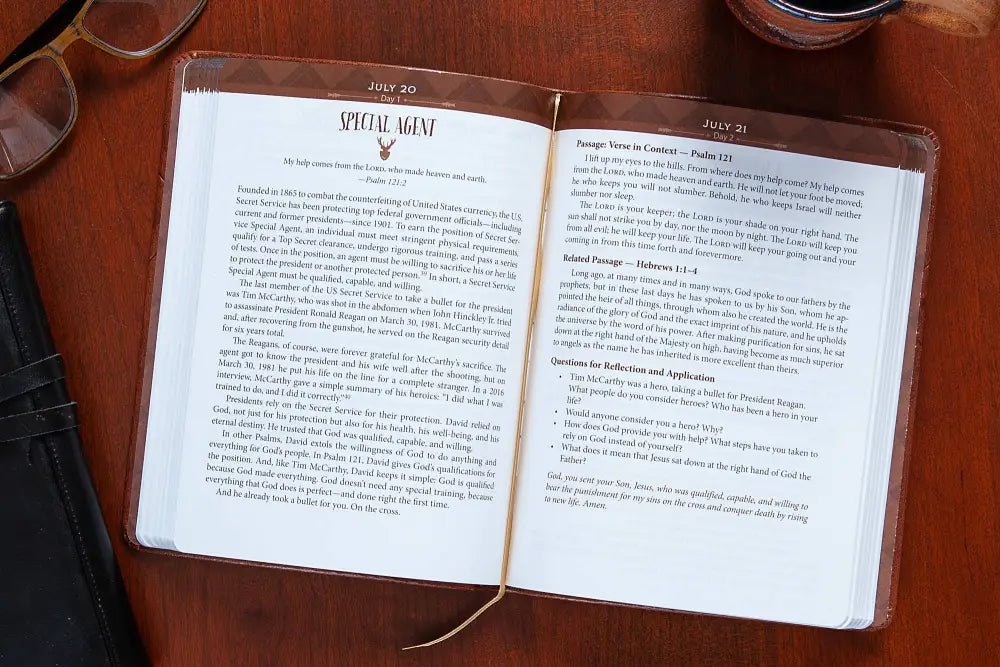 JULY 20
Day 1
SPECIAL AGENT
My help comes from the LORD, who made heaven and earth.
—Psalm 121:2
Founded in 1865 to combat the counterfeiting of United States currency, the U.S.
Secret Service has been protecting top federal government officials—including
current and former presidents—since 1901. To earn the position of Secret Ser-
vice Special Agent, an individual must meet stringent physical requirements,
qualify for a Top Secret clearance, undergo rigorous training, and pass a series
of tests. Once in the position, an agent must be willing to sacrifice his or her life
to protect the president or another protected person.³⁹ In short, a Secret Service
Special Agent must be qualified, capable, and willing.
The last member of the US Secret Service to take a bullet for the president
was Tim McCarthy, who was shot in the abdomen when John Hinckley Jr. tried
to assassinate President Ronald Reagan on March 30, 1981. McCarthy survived
and, after recovering from the gunshot, he served on the Reagan security detail
for six years total.
The Reagans, of course, were forever grateful for McCarthy's sacrifice. The
agent got to know the president and his wife well after the shooting, but on
March 30, 1981 he put his life on the line for a complete stranger. In a 2016
interview, McCarthy gave a simple summary of his heroics: "I did what I was
trained to do, and I did it correctly."⁴⁰
Presidents rely on the Secret Service for their protection. David relied on
God, not just for his protection but also for his health, his well-being, and his
eternal destiny. He trusted that God was qualified, capable, and willing.
In other Psalms, David extols the willingness of God to do anything and
everything for God's people. In Psalm 121, David gives God's qualifications for
the position. And, like Tim McCarthy, David keeps it simple: God is qualified
because God made everything. God doesn't need any special training, because
everything that God does is perfect—and done right the first time.
And he already took a bullet for you. On the cross.
JULY 21
Day 2
Passage: Verse in Context — Psalm 121
I lift up my eyes to the hills. From where does my help come? My help comes
from the LORD, who made heaven and earth. He will not let your foot be moved;
he who keeps you will not slumber. Behold, he who keeps Israel will neither
slumber nor sleep.
The LORD is your keeper; the LORD is your shade on your right hand. The
sun shall not strike you by day, nor the moon by night. The LORD will keep you
from all evil; he will keep your life. The LORD will keep your going out and your
coming in from this time forth and forevermore.
Related Passage — Hebrews 1:1–4
Long ago, at many times and in many ways, God spoke to our fathers by the
prophets, but in these last days he has spoken to us by his Son, whom he ap-
pointed the heir of all things, through whom also he created the world. He is the
radiance of the glory of God and the exact imprint of his nature, and he upholds
the universe by the word of his power. After making purification for sins, he sat
down at the right hand of the Majesty on high, having become as much superior
to angels as the name he has inherited is more excellent than theirs.
Questions for Reflection and Application
• Tim McCarthy was a hero, taking a bullet for President Reagan.
What people do you consider heroes? Who has been a hero in your
life?
• Would anyone consider you a hero? Why?
• How does God provide you with help? What steps have you taken to
rely on God instead of yourself?
• What does it mean that Jesus sat down at the right hand of God the
Father?
God, you sent your Son, Jesus, who was qualified, capable, and willing to
bear the punishment for my sins on the cross and conquer death by rising
to new life. Amen.